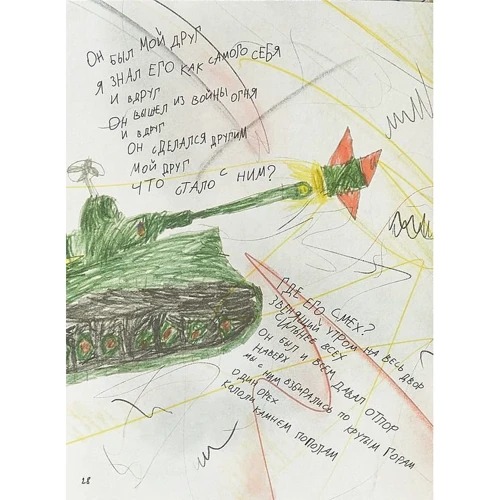 ОН БЫЛ МОЙ ДРУГ
Я ЗНАЛ ЕГО КАК САМОГО СЕБЯ
И ВДРУГ
ОН ВЫШЕЛ ИЗ ВОЙНЫ ОГНЯ
И ВДРУГ
ОН СДЕЛАЛСЯ ДРУГИМ
МОЙ ДРУГ
ЧТО СТАЛО С НИМ?
ГДЕ ЕГО СМЕХ?
ЗВЕНЯЩИЙ УТРОМ НА ВЕСЬ ДВОР
СИЛЬНЕЕ ВСЕХ
ОН БЫЛ И ВСЕМ ДАВАЛ ОТПОР
НАВЕРХ
МЫ С НИМ ВЗБИРАЛИСЬ ПО КРУТЫМ ГОРАМ
ОДИН ОРЕХ
КОЛОЛИ КАМНЕМ ПОПОЛАМ
28